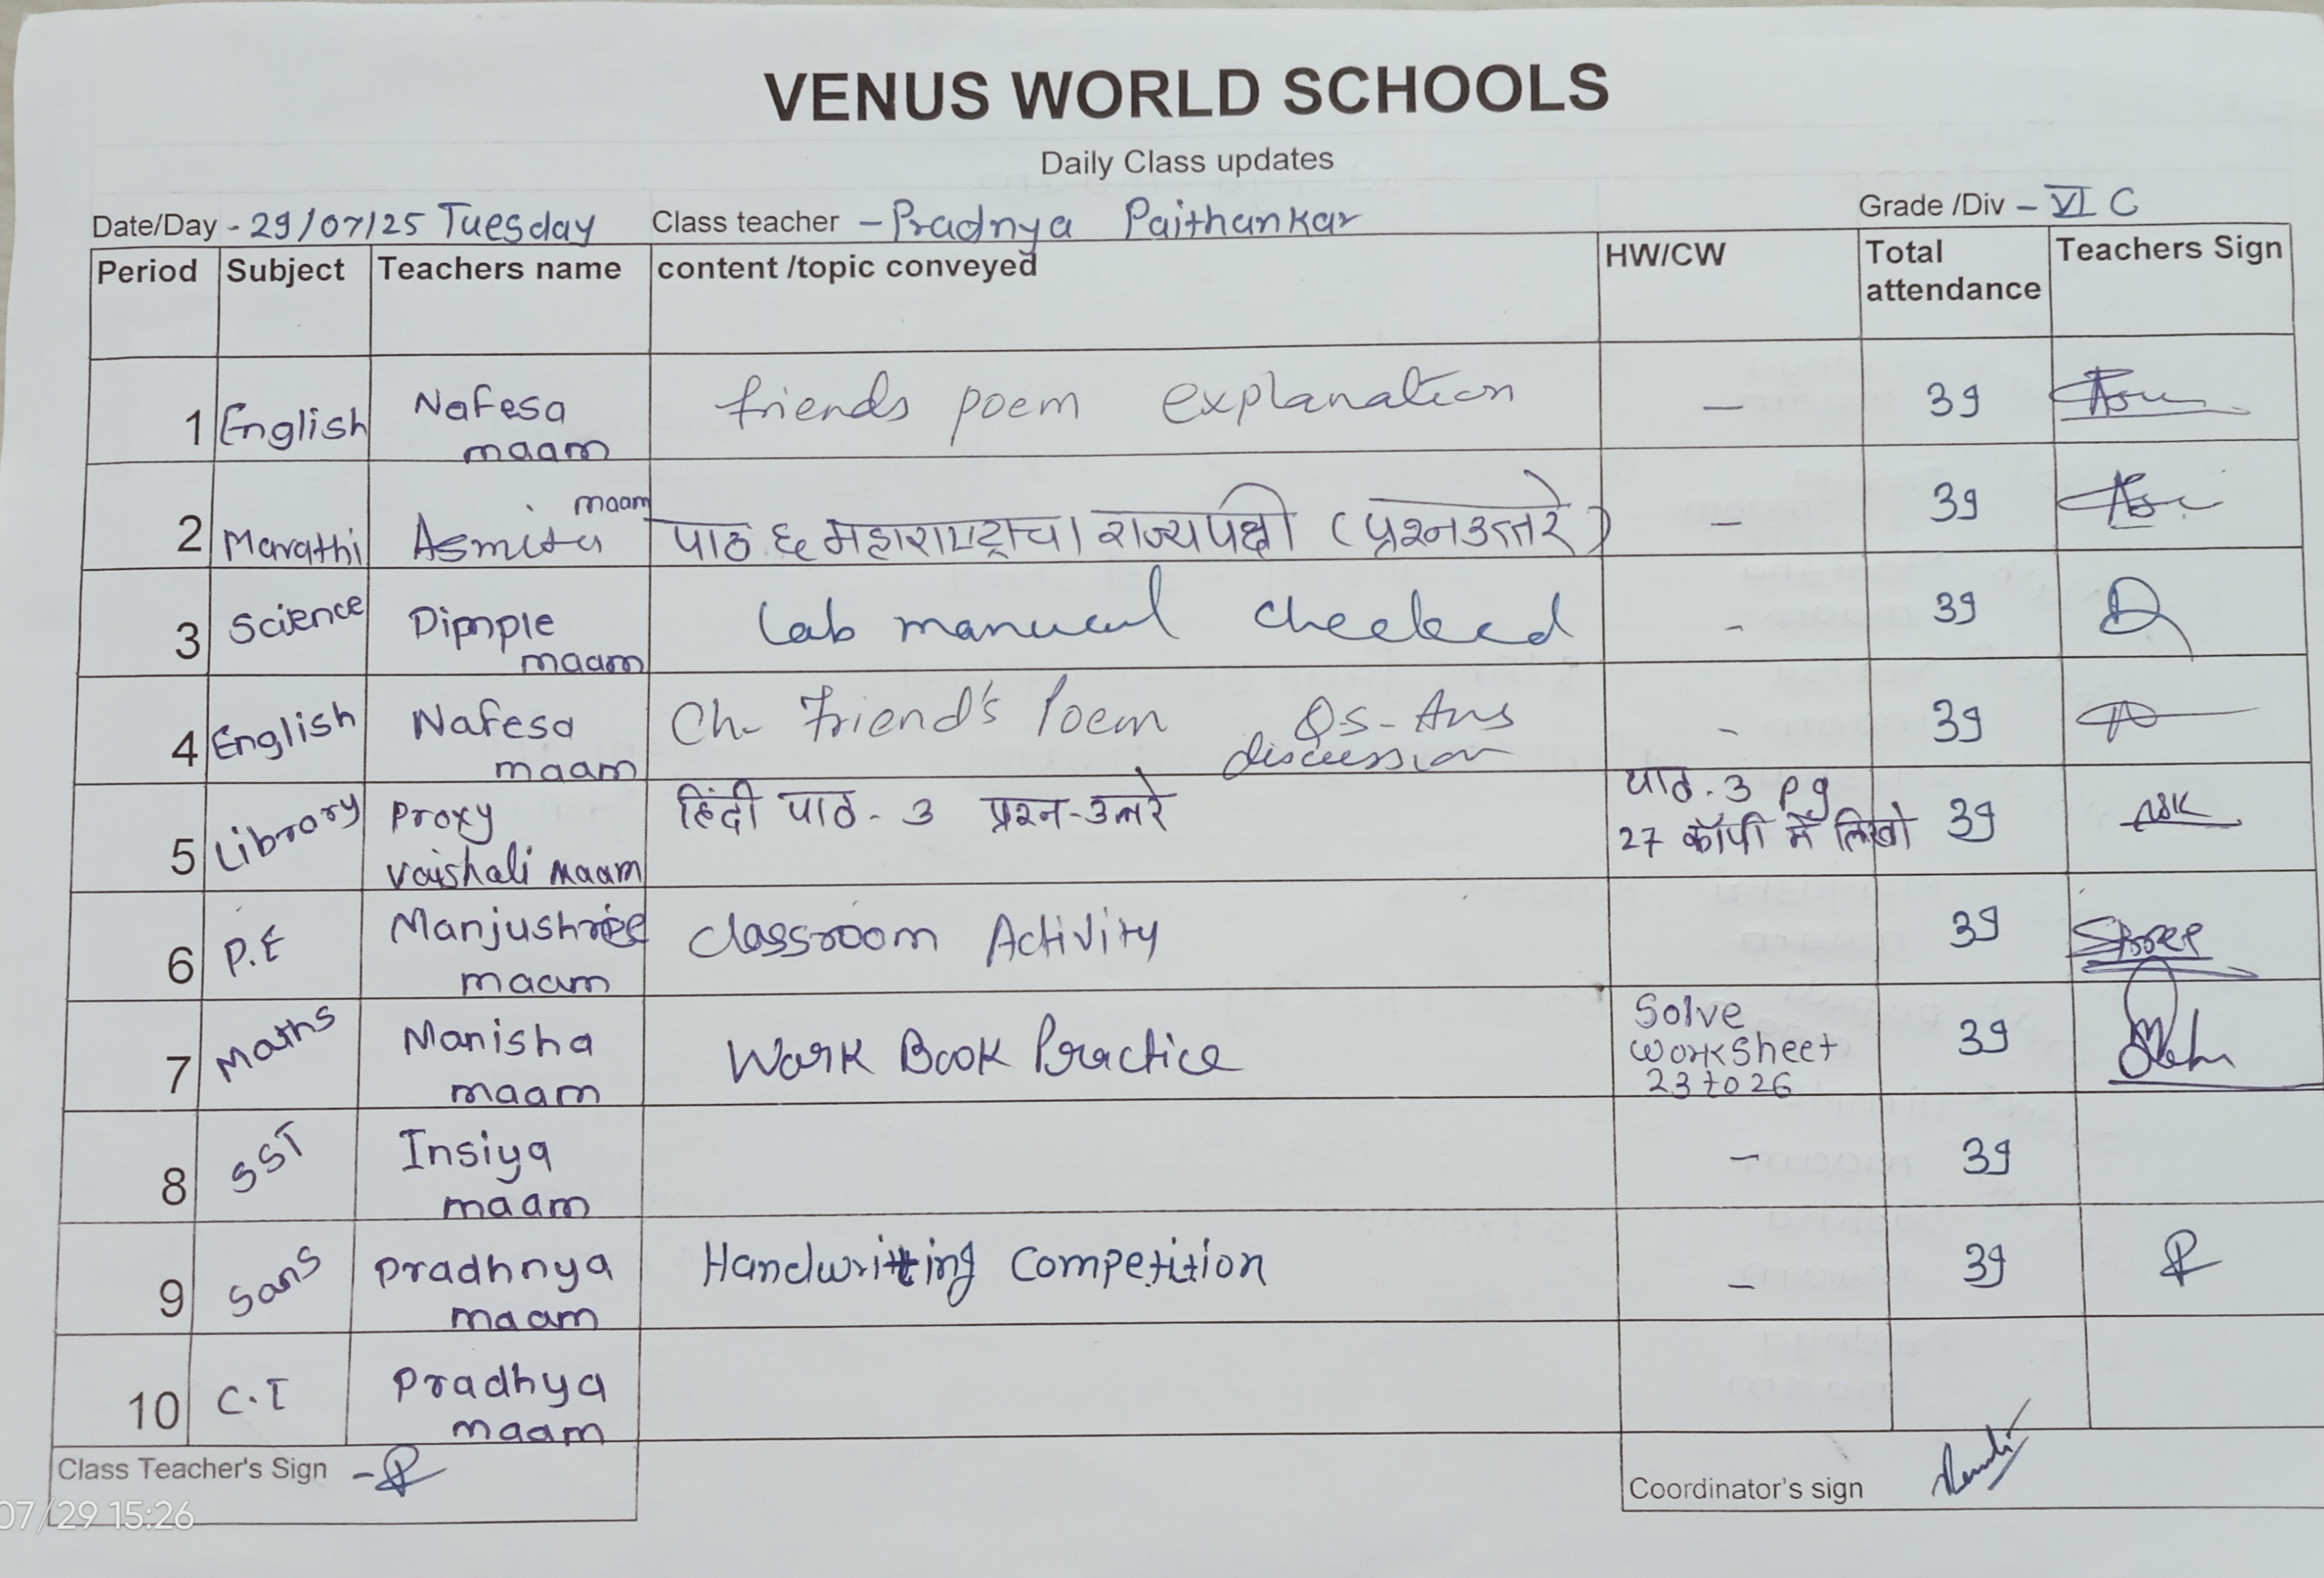 VENUS WORLD SCHOOLS
Daily Class updates
Date/Day - 29/07/25 Tuesday Class teacher - Pradnya Paithankar Grade /Div - VI C
Period Subject Teachers name content /topic conveyed HW/CW Total attendance Teachers Sign
1 English Nafesa maam friends poem explanation — 39
2 Marathi Asmita maam पाठ ६ महाराष्ट्राचा राज्यपक्षी (प्रश्नउत्तरे) — 39
3 Science Dipmple maam Lab manual checked - 39
4 English Nafesa maam Ch- Friend's Poem Qs-Ans discussion - 39
5 Library Proxy Vaishali maam हिंदी पाठ - 3 प्रश्न-उत्तरे पाठ. 3 pg 27 कॉपी में लिखो 39
6 P.E Manjushree maam Classroom Activity 39 Shree
7 Maths Manisha maam Work Book Practice Solve worksheet 23 to 26 39
8 SST Insiya maam — 39
9 Sans Pradhnya maam Handwritting Competition — 39
10 C.T Pradhya maam
Class Teacher's Sign -
Coordinator's sign
07/29 15:26